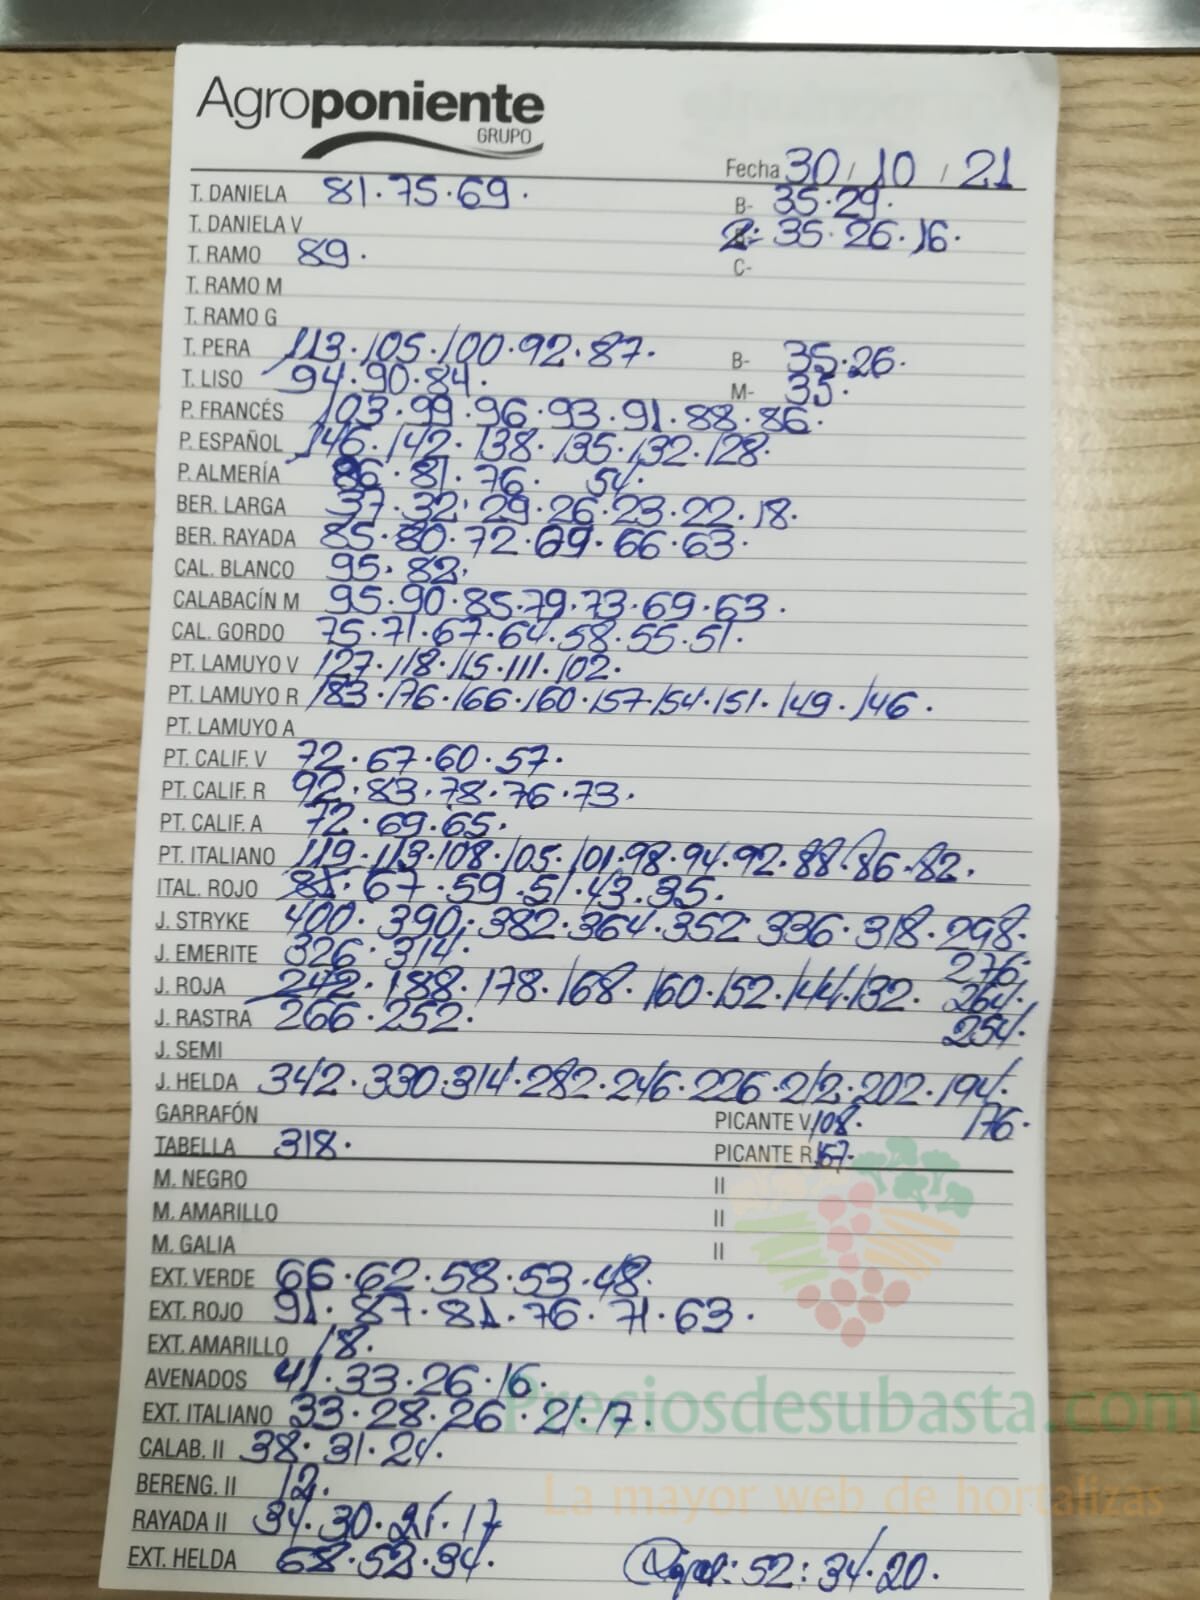 Agroponiente
GRUPO
Fecha 30 / 10 / 21
T. DANIELA 81·75·69· B- 35·29·
T. DANIELA V 2: 35·26·16·
T. RAMO 89· C-
T. RAMO M
T. RAMO G
T. PERA 113·105·100·92·87· B- 35·26·
T. LISO 94·90·84· M- 35·
P. FRANCÉS 103·99·96·93·91·88·86·
P. ESPAÑOL 146·142·138·135·132·128·
P. ALMERÍA 86·81·76· 54·
BER. LARGA 37·32·29·26·23·22·18·
BER. RAYADA 85·80·72·69·66·63·
CAL. BLANCO 95·82·
CALABACÍN M 95·90·85·79·73·69·63·
CAL. GORDO 75·71·67·64·58·55·51·
PT. LAMUYO V 127·118·115·111·102·
PT. LAMUYO R 183·176·166·160·157·154·151·149·146·
PT. LAMUYO A
PT. CALIF. V 72·67·60·57·
PT. CALIF. R 92·83·78·76·73·
PT. CALIF. A 72·69·65·
PT. ITALIANO 119·113·108·105·101·98·94·92·88·86·82·
ITAL. ROJO 67·59·51·43·35·
J. STRYKE 400·390·382·364·352 336·318·298·
J. EMERITE 326·314· 276·
J. ROJA 242·188·178·168·160·152·144·132· 264·
J. RASTRA 266·252· 254·
J. SEMI
J. HELDA 342·330·314·282·246·226·212·202·194·
GARRAFÓN PICANTE V 108· 176·
TABELLA 318· PICANTE R 157·
M. NEGRO II
M. AMARILLO II
M. GALIA II
EXT. VERDE 66·62·58·53·48·
EXT. ROJO 91·87·81·76·71·63·
EXT. AMARILLO 18·
AVENADOS 41·33·26·16·
Preciosdesubasta.com
EXT. ITALIANO 33·28·26·21·17·
CALAB. II 38·31·24·
BERENG. II 12·
La mayor web de hortalizas
RAYADA II 34·30·21·17
EXT. HELDA 68·52·34· 52: 34·20·